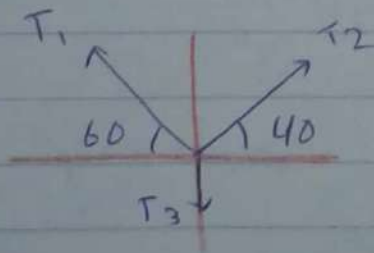 T1 T2
60 40
T3